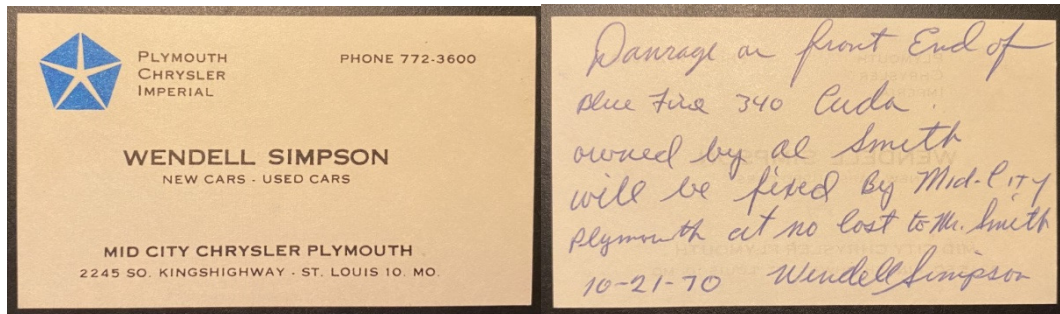 PLYMOUTH
CHRYSLER
IMPERIAL
PHONE 772-3600
WENDELL SIMPSON
NEW CARS - USED CARS
MID CITY CHRYSLER PLYMOUTH
2245 SO. KINGSHIGHWAY - ST. LOUIS 10. MO.
Damage on front End of
Blue Fire 340 Cuda.
owned by Al Smith
will be fixed By Mid-City
Plymouth at no Cost to Mr. Smith
10-21-70 Wendell Simpson